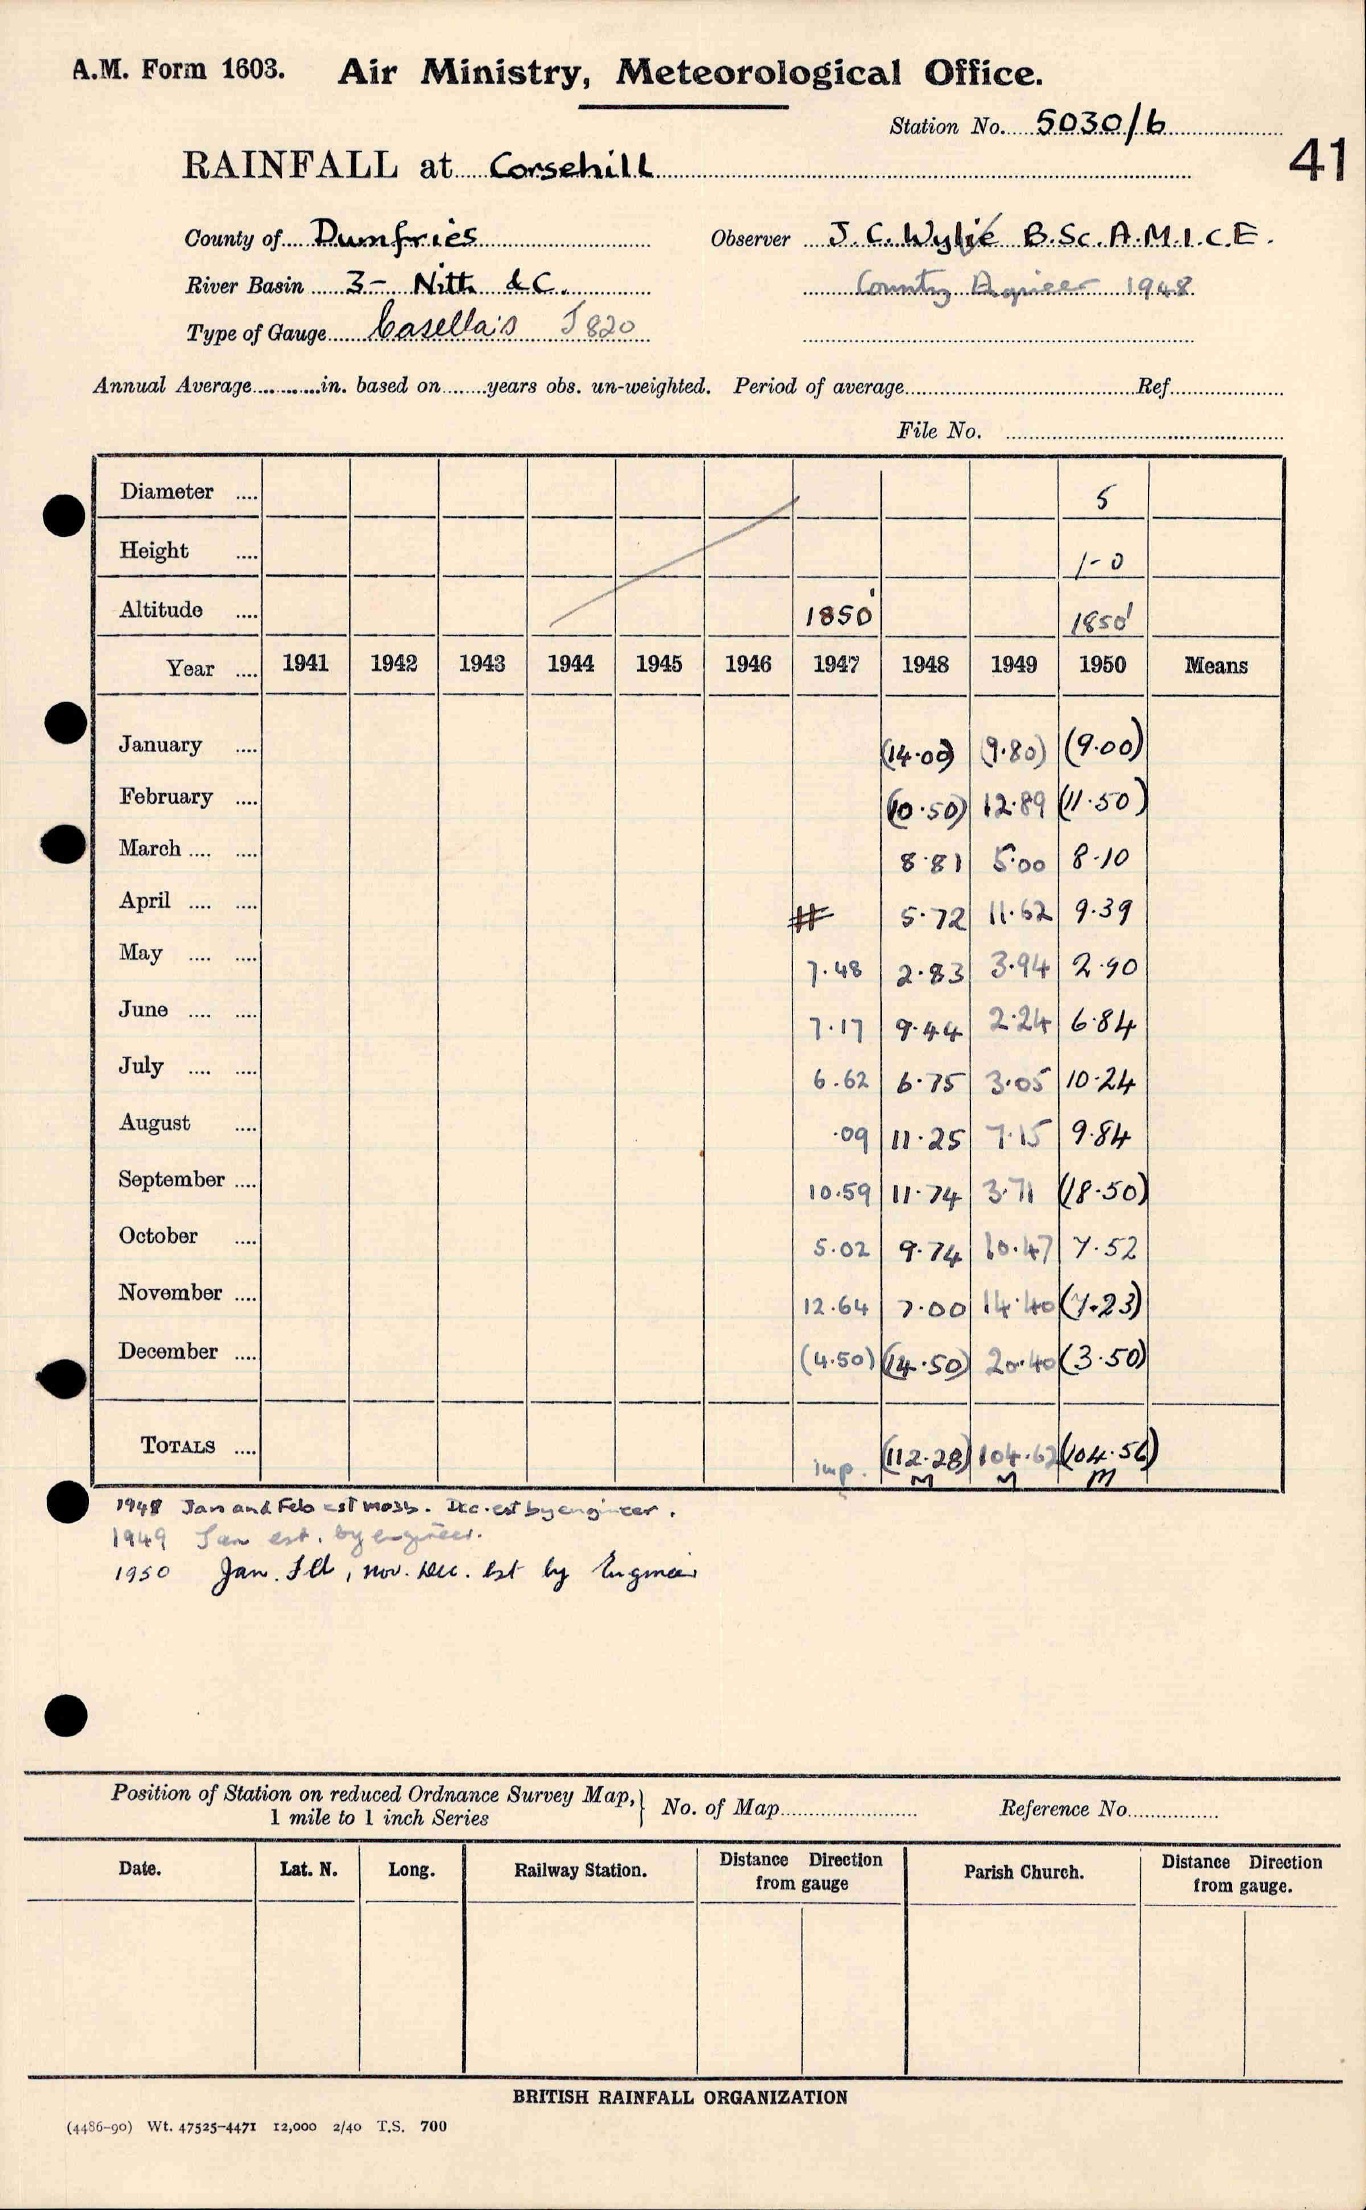 A.M. Form 1603. Air Ministry, Meteorological Office.
Station No. 5030/6
41
RAINFALL at Corsehill
County of Dumfries Observer J. C. Wylie B.Sc. A.M.I.C.E.
River Basin 3- Nith &c. County Engineer 1948
Type of Gauge Casella's J820
Annual Average in. based on years obs. un-weighted. Period of average Ref.
File No.
Diameter 5
Height 1-0
Altitude 1850' 1850'
Year 1941 1942 1943 1944 1945 1946 1947 1948 1949 1950 Means
January (14.00) (9.80) (9.00)
February (10.50) 12.89 (11.50)
March 8.81 5.00 8.10
April # 5.72 11.62 9.39
May 7.48 2.83 3.94 2.90
June 7.17 9.44 2.24 6.84
July 6.62 6.75 3.05 10.24
August .09 11.25 7.15 9.84
September 10.59 11.74 3.71 (18.50)
October 5.02 9.74 10.47 7.52
November 12.64 7.00 14.40 (7.23)
December (4.50) (14.50) 20.40 (3.50)
TOTALS imp. (112.28) 104.62 (104.56)
M M M
1948 Jan and Feb est MO3b. Dec. est by engineer.
1949 Jan est. by engineer.
1950 Jan. Feb, Nov. Dec. Est by Engineer
Position of Station on reduced Ordnance Survey Map, } No. of Map Reference No.
1 mile to 1 inch Series
Date. Lat. N. Long. Railway Station. Distance Direction from gauge Parish Church. Distance Direction from gauge.
BRITISH RAINFALL ORGANIZATION
(4486-90) Wt. 47525-4471 12,000 2/40 T.S. 700